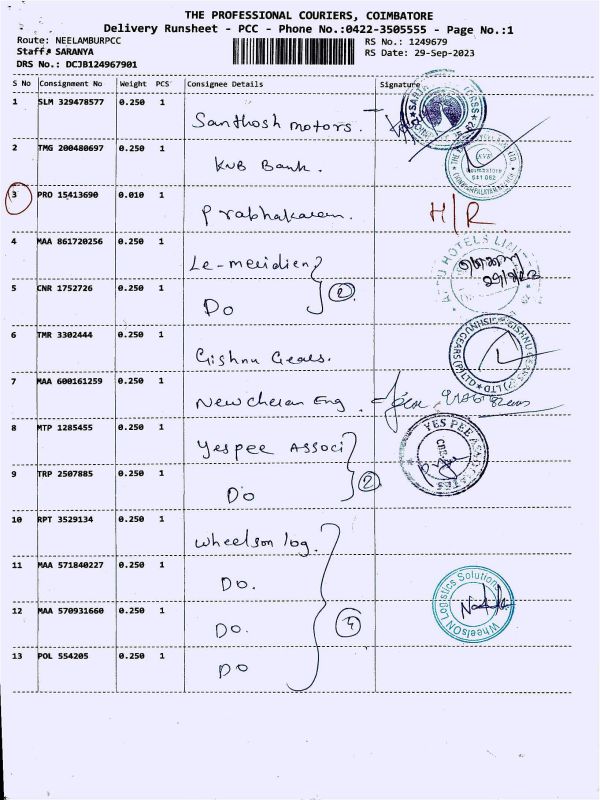 THE PROFESSIONAL COURIERS, COIMBATORE
Delivery Runsheet - PCC - Phone No.:0422-3505555 - Page No.:1
Route: NEELAMBURPCC
RS No.: 1249679
Staff: SARANYA
RS Date: 29-Sep-2023
DRS No.: DCJB124967901
S No Consignment No Weight PCS Consignee Details Signature
1 SLM 329478577 0.250 1 Santhosh motors.
2 TMG 200480697 0.250 1 KVB Bank.
3 PRO 15413690 0.010 1 Prabhakaran. H/R
4 MAA 861720256 0.250 1 Le-meridien
5 CNR 1752726 0.250 1 Do 2
6 TMR 3302444 0.250 1 Gishnu Gears.
7 MAA 600161259 0.250 1 New cheran Eng.
8 MTP 1285455 0.250 1 Yespee Associ
YES PEE ASSOCIATES
9 TRP 2507885 0.250 1 Do 2
10 RPT 3529134 0.250 1 Wheelson log.
11 MAA 571840227 0.250 1 Do.
WheelsON Logistics Solutions
12 MAA 570931660 0.250 1 Do. 4
13 POL 554205 0.250 1 Do